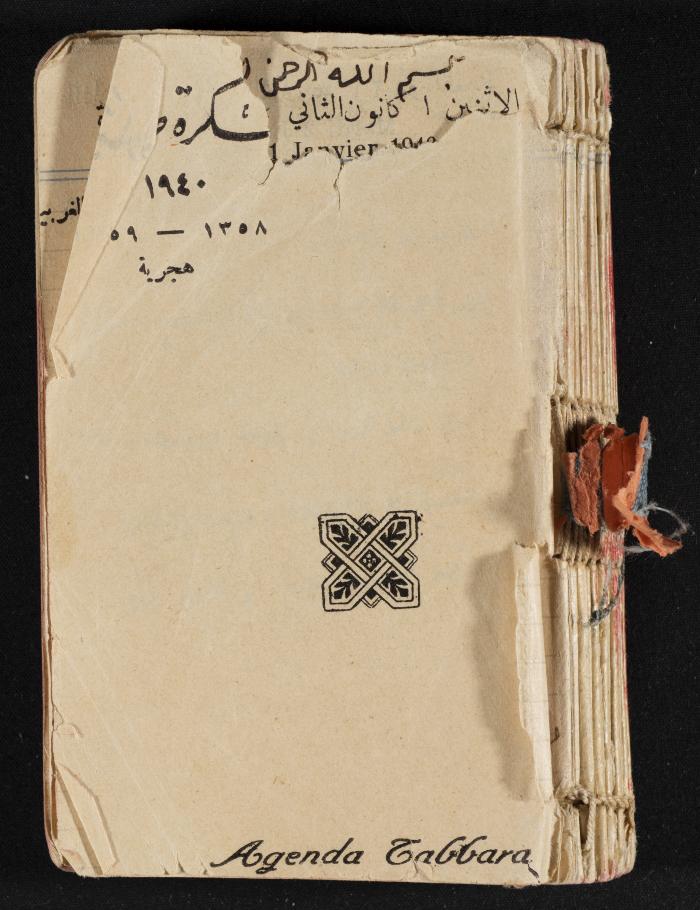 بسم الله الرحمن ا
الاثنين ١ كانون الثاني
1 Janvier 1940
١٩٤٠
الغربي
١٣٥٨ — ٥٩
هجرية
Agenda Tabbara